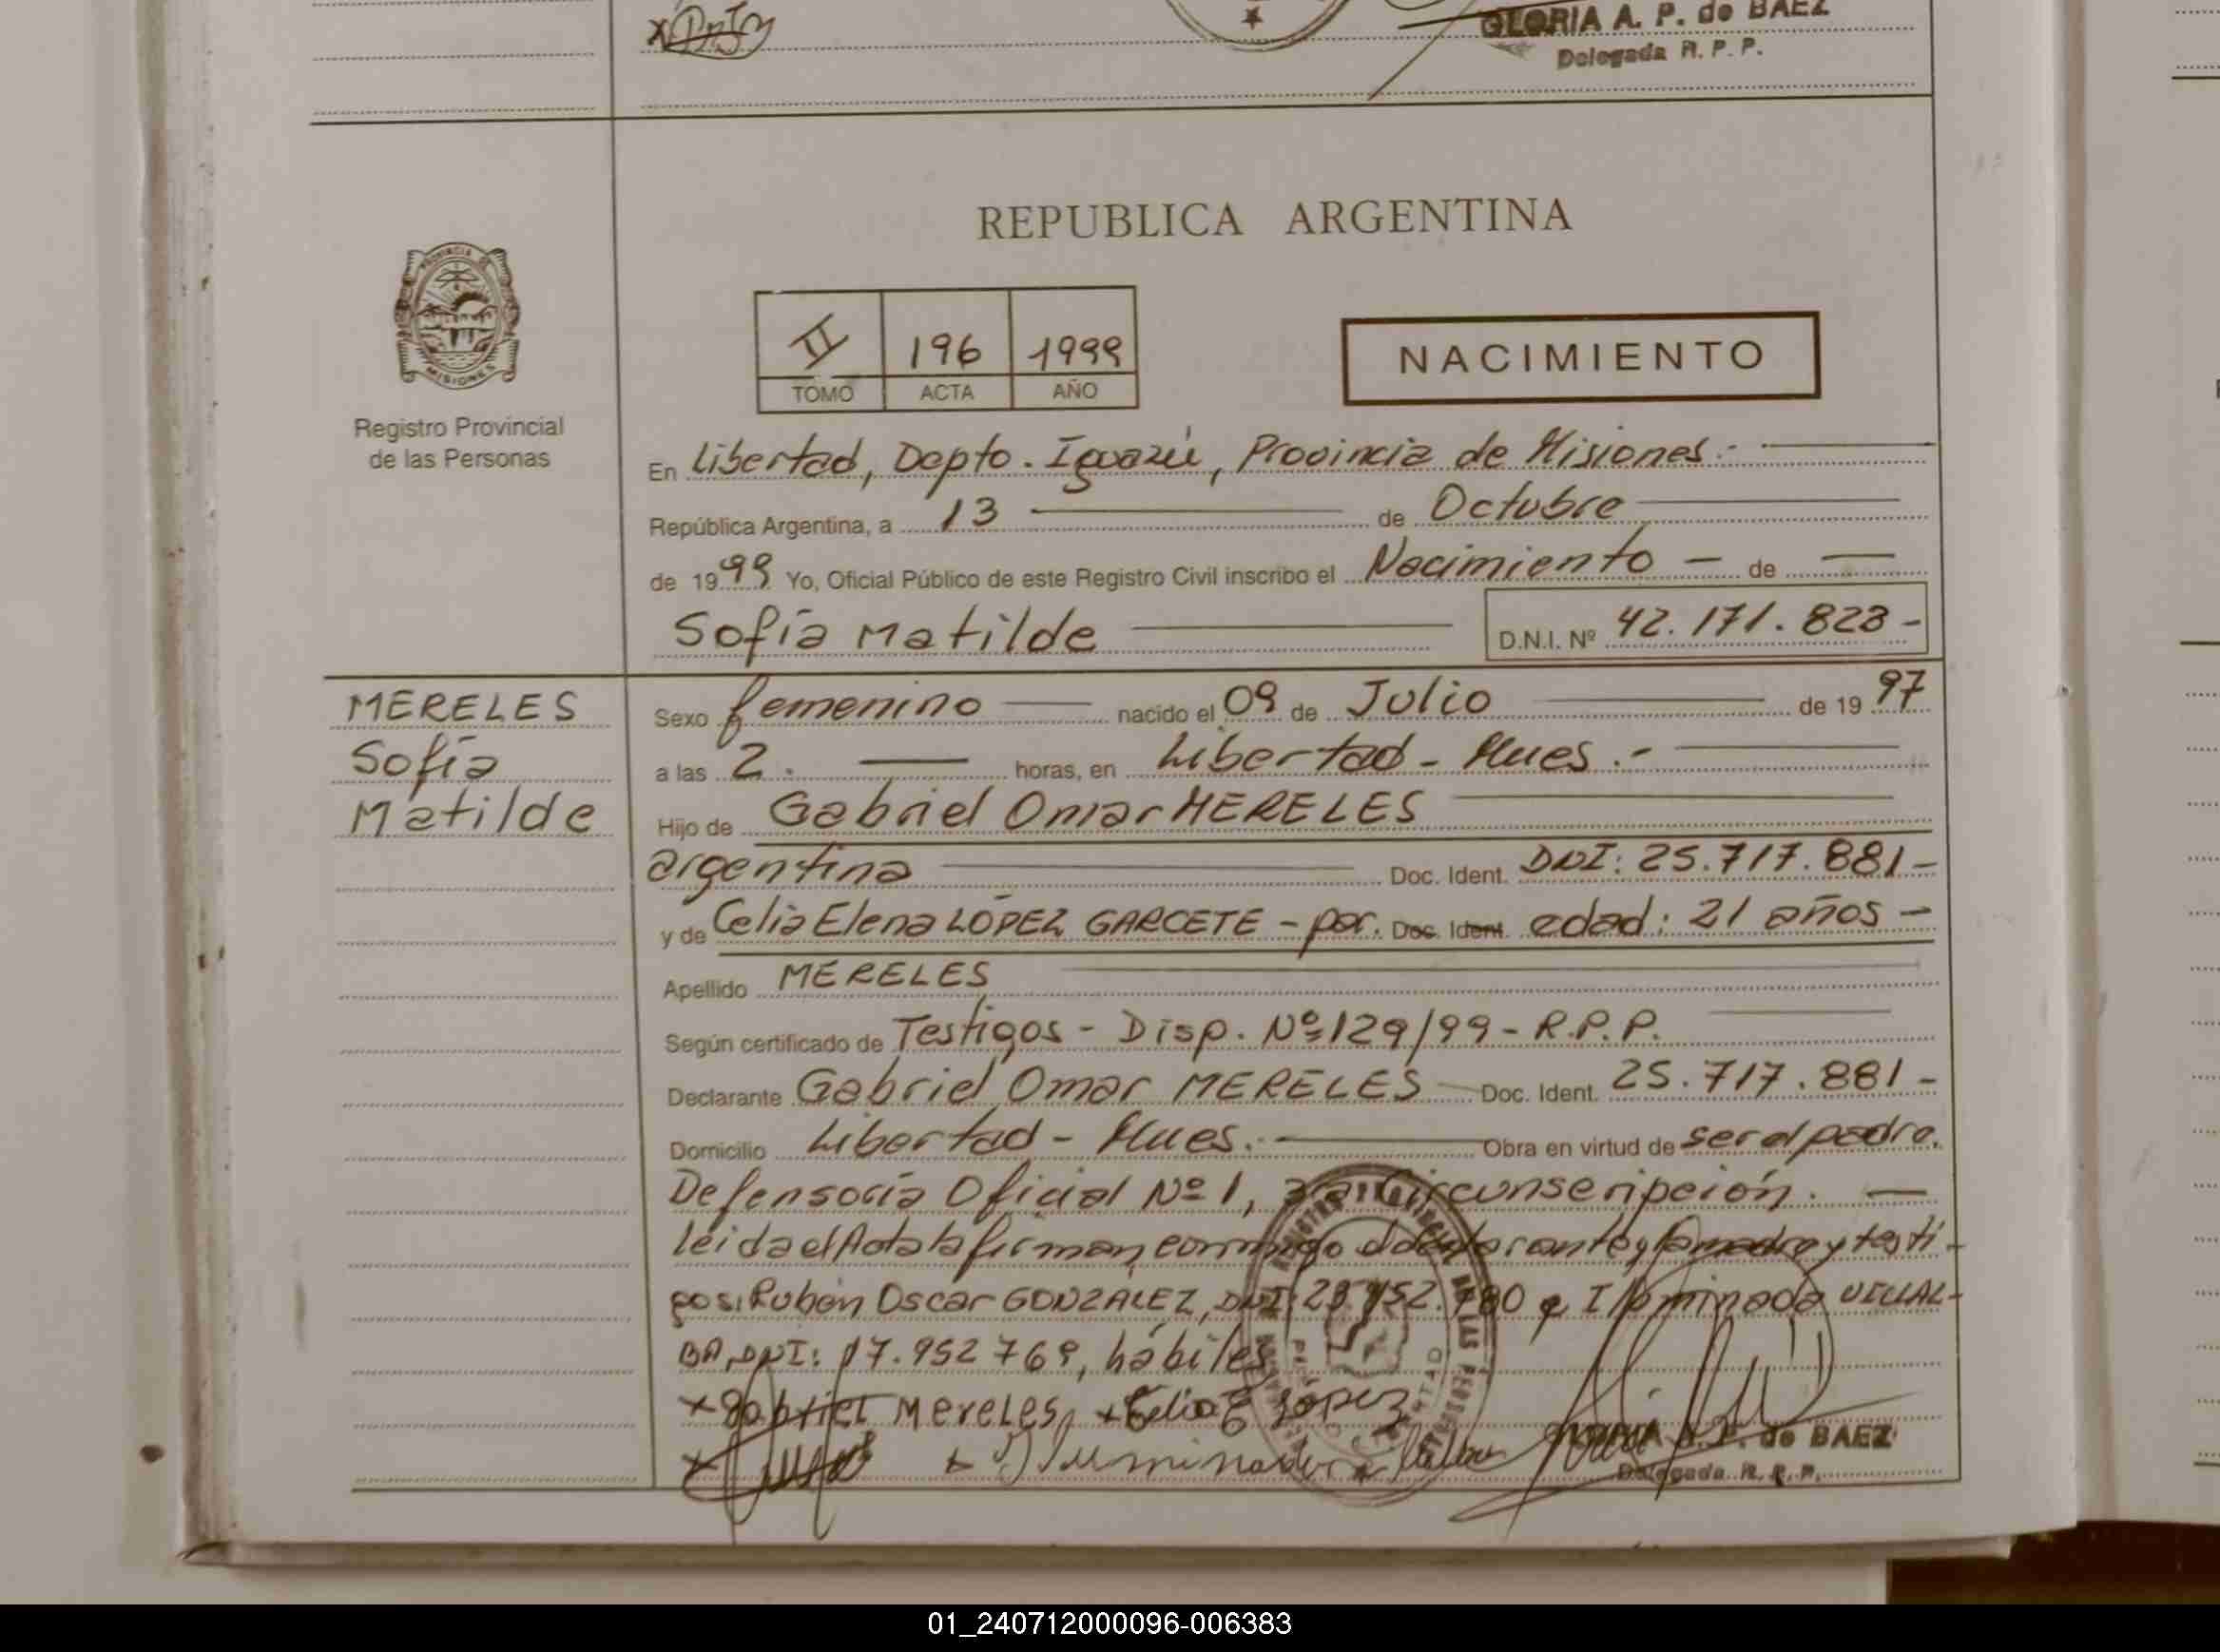 GLORIA A. P. de BAEZ
Delegada R. P. P.
REPUBLICA ARGENTINA
PROVINCIA DE
MISIONES
II 196 1999
TOMO ACTA AÑO
NACIMIENTO
Registro Provincial
de las Personas
En Libertad, Depto. Iguazú, Provincia de Misiones.-
República Argentina, a 13 de Octubre
de 1999 Yo, Oficial Público de este Registro Civil inscribo el Nacimiento - de
Sofía Matilde D.N.I. Nº 42.171.823-
MERELES
Sofía
Matilde
Sexo femenino nacido el 09 de Julio de 1997
a las 2. horas, en Libertad - Mnes.-
Hijo de Gabriel Omar MERELES
argentina Doc. Ident. DNI: 25.717.881-
y de Celia Elena LÓPEZ GARCETE - par. Doc. Ident. edad: 21 años -
Apellido MERELES
Según certificado de Testigos - Disp. Nº 129/99 - R.P.P.
Declarante Gabriel Omar MERELES Doc. Ident. 25.717.881-
Domicilio Libertad - Mnes.- Obra en virtud de ser el padre.
Defensoría Oficial Nº 1, 3a Circunscripción. -
leida el Acta la firman conmigo el declarante y la madre y testi-
gos: Rubén Oscar GONZALEZ, DNI: e Iluminada VILLAL-
BA, DNI: 17.952 769, hábiles
x gabriel Mereles, x Celia E López
x Iluminada Villalba
GLORIA A. P. de BAEZ
Delegada R. P. P.
01_240712000096-006383